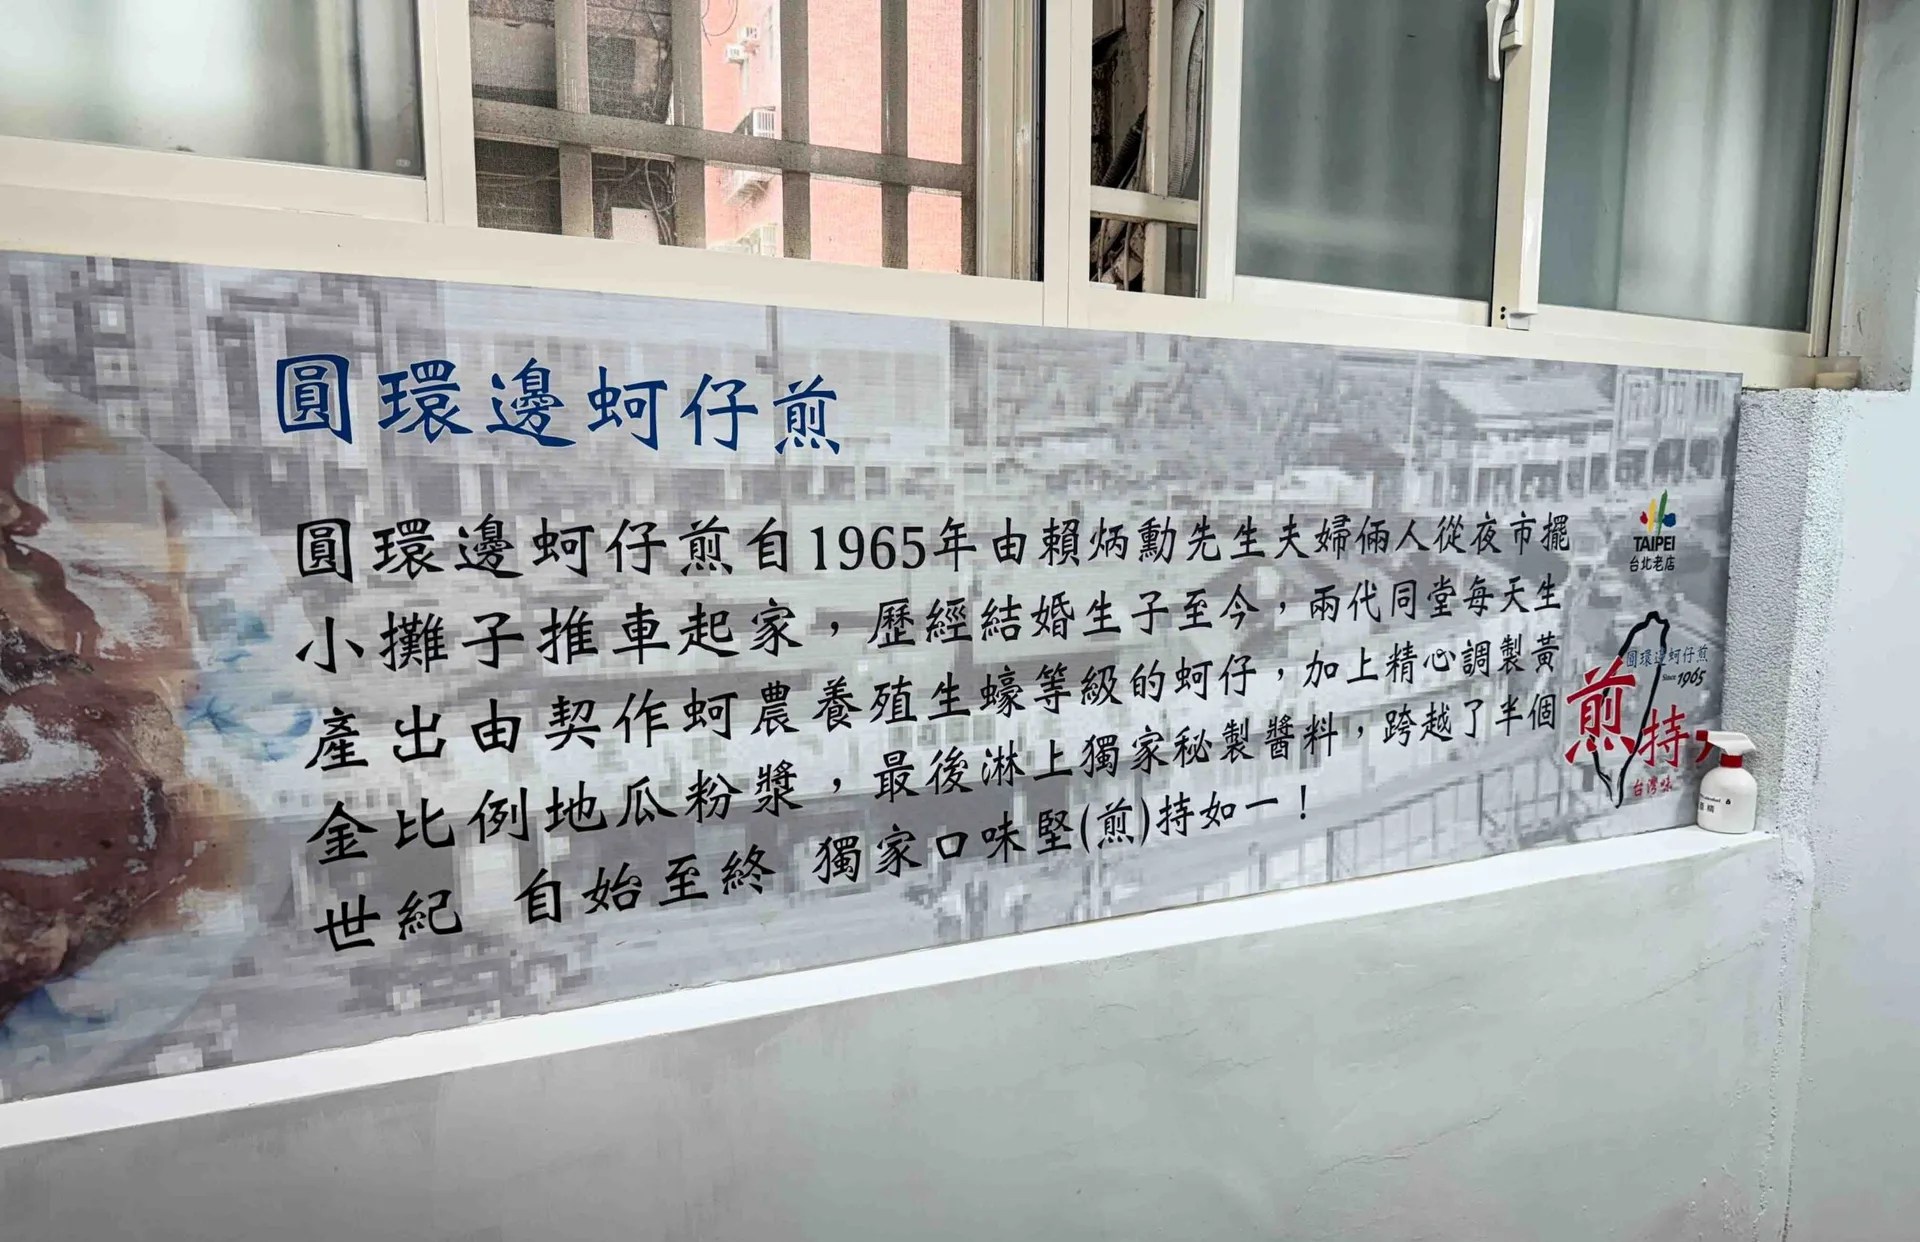 圓環邊蚵仔煎
圓環邊蚵仔煎自1965年由賴炳勳先生夫婦倆人從夜市擺
小攤子推車起家，歷經結婚生子至今，兩代同堂每天生
產出由契作蚵農養殖生蠔等級的蚵仔，加上精心調製黃
金比例地瓜粉漿，最後淋上獨家秘製醬料，跨越了半個
世紀 自始至終 獨家口味堅(煎)持如一！
TAIPEI
台北老店
圓環邊蚵仔煎
Since 1965
煎持，
台灣味